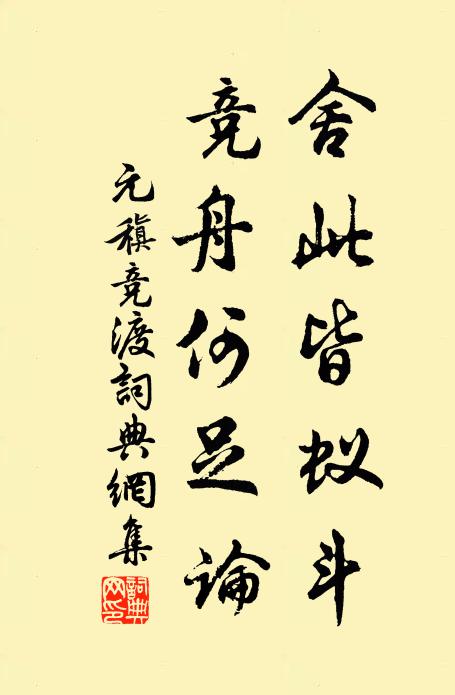 舍此皆蚁斗
竞舟何足论
元稹竞渡詞典網集
詞典网印